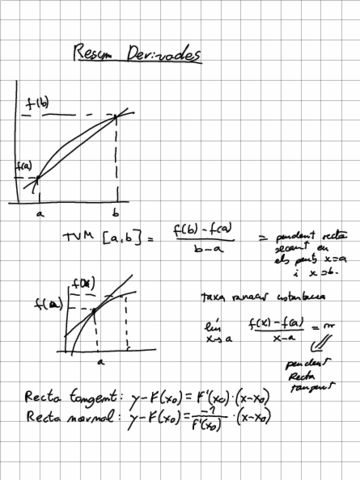 Resum Derivades
f(b)
f(a)
a b
TVM [a,b] = f(b)-f(a) / b-a = pendent recta
secant en
els punts x=a
i x=b.
f(x)
f(a)
a
taxa instantania
lim x→a f(x)-f(a) / x-a = m
pendent
Recta
tangent
Recta tangent: y-F(x0)=F'(x0)·(x-x0)
Recta normal: y-F(x0)=-1/F'(x0)·(x-x0)